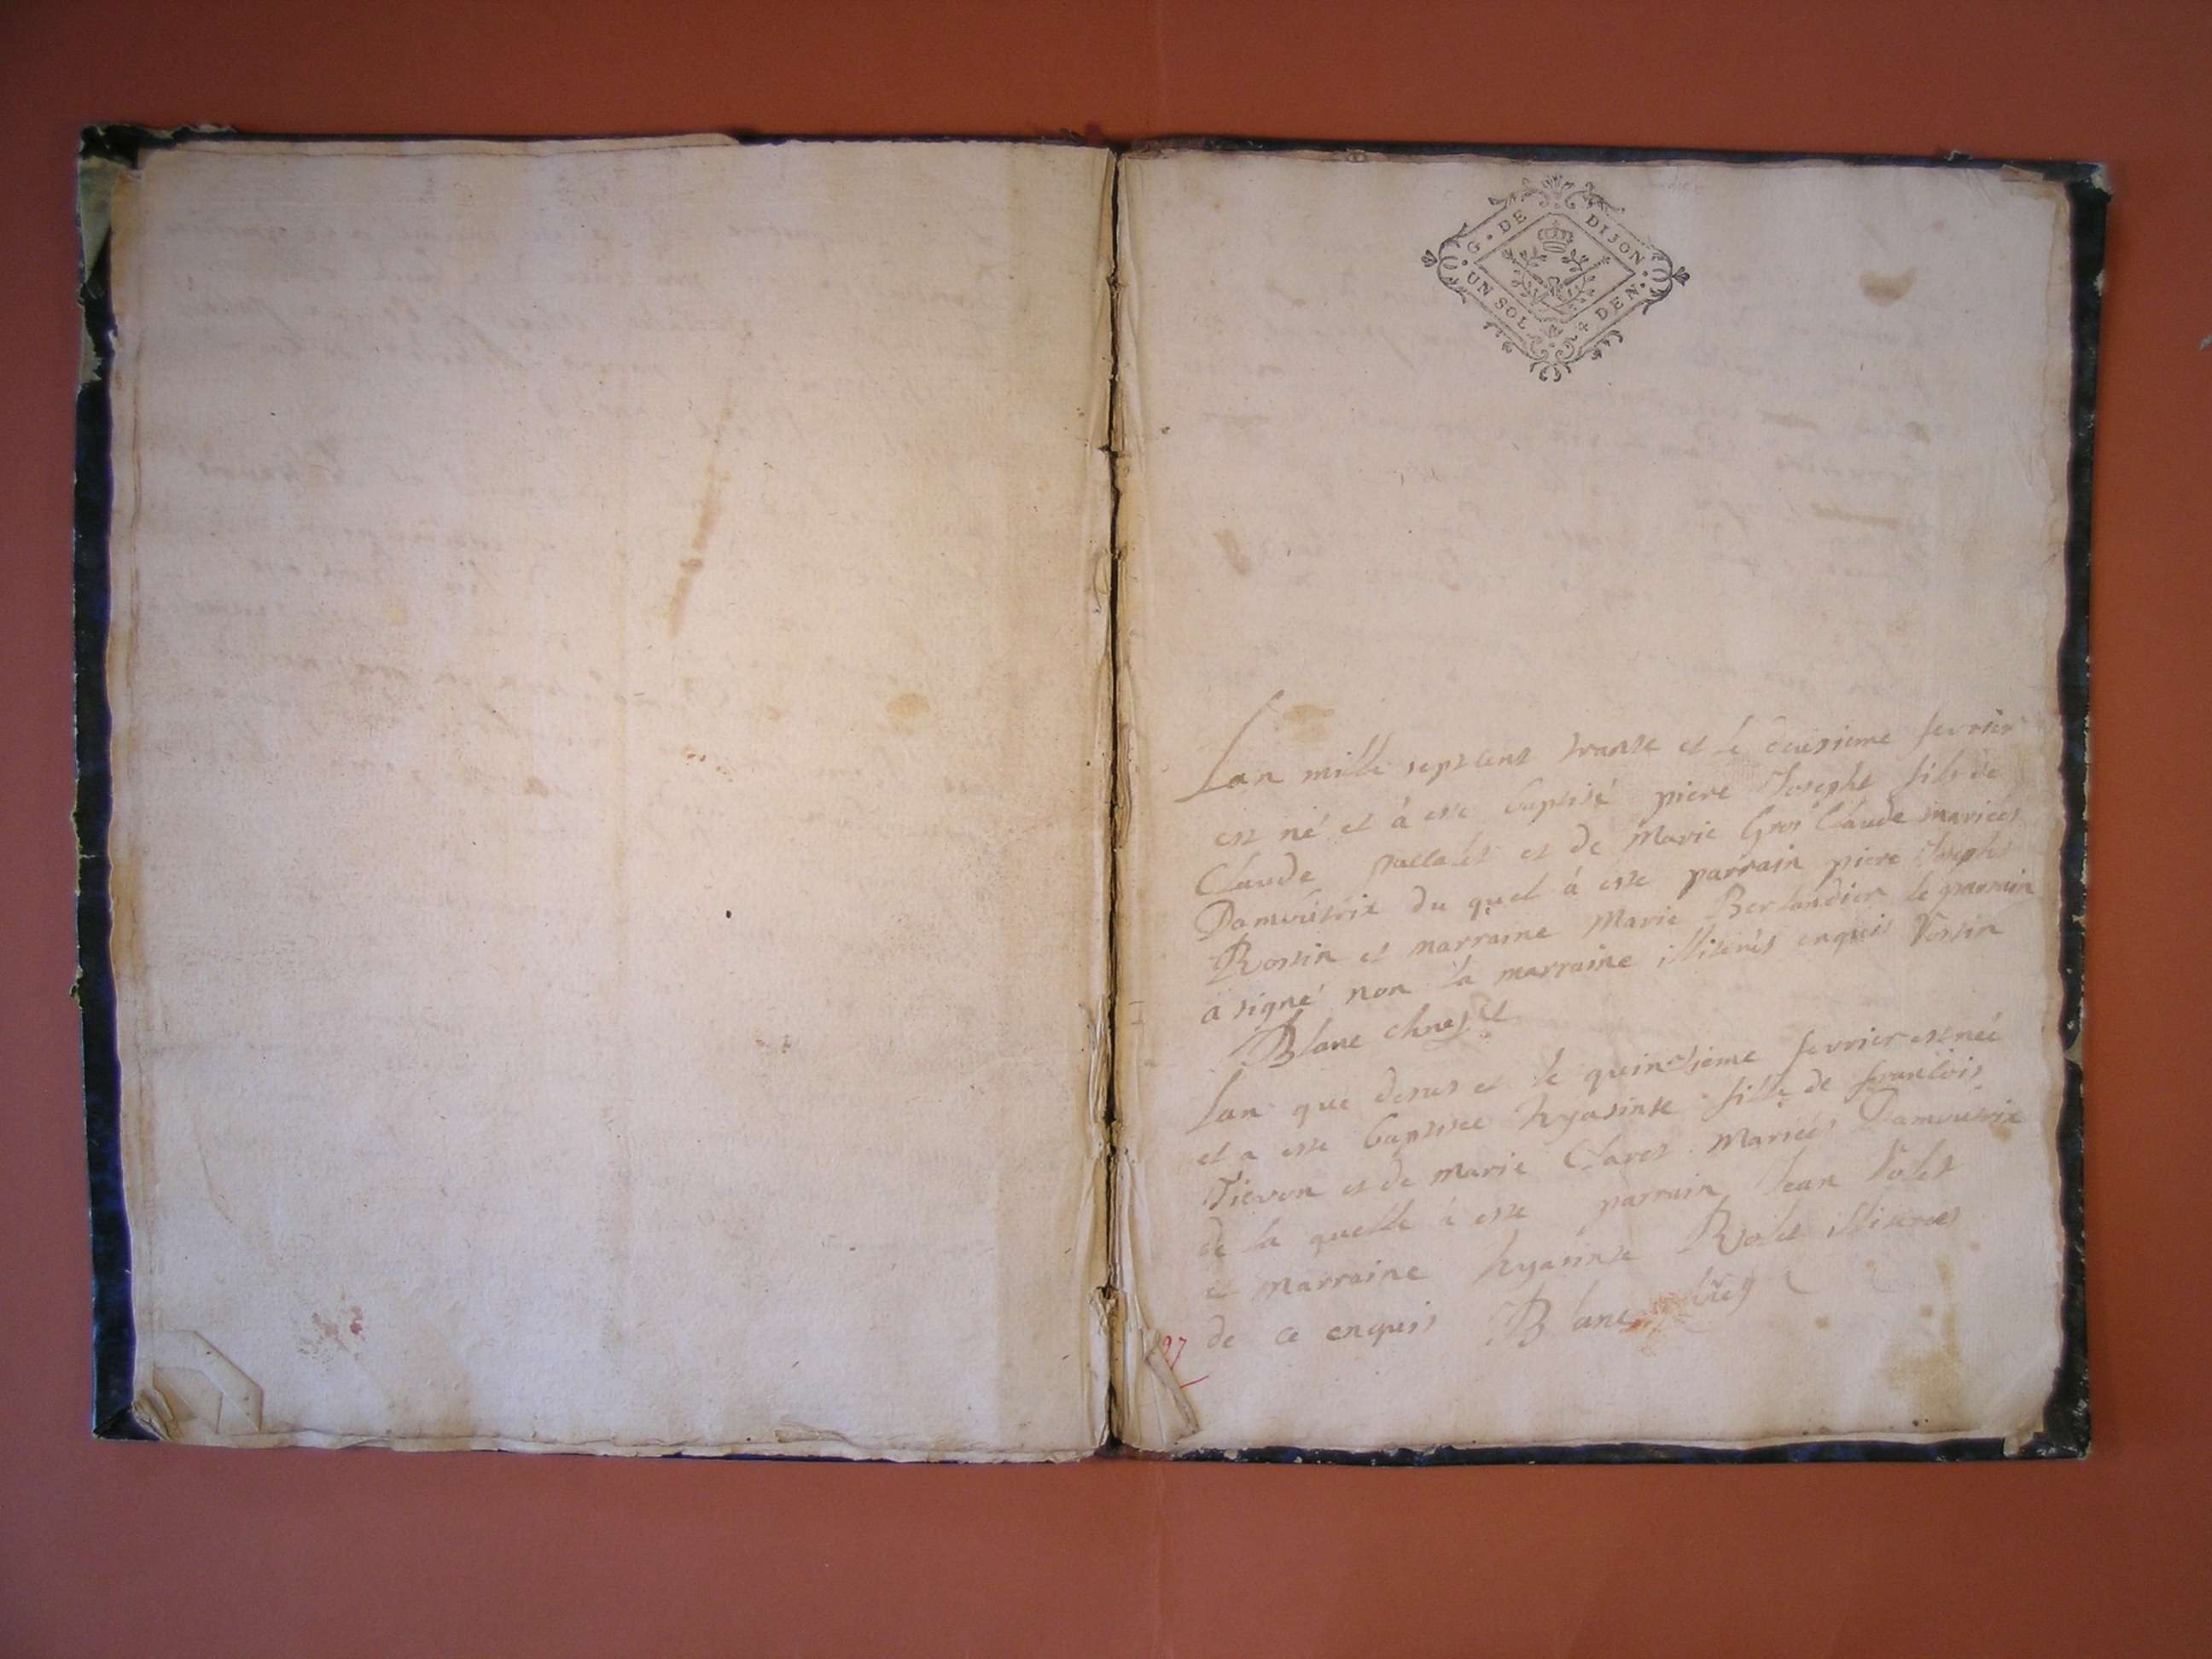 G. DE DIJON.
UN SOL 4 DEN.
Lan mille septcent trante et le deusieme fevrier
est né et à este baptisé piere Josepht fils de
Claude et de Marie Gros Claude mariées
Damvistrix du quel à este parrain piere Josepht
Rossin et marraine Marie Berlandier le parrain
a signé non la marraine illiterés enquis Rossin
Blanc
Lan que desus et le quinsieme fevrier est née
et a este baptisee hyasinte fille de francois
Tievon et de marie Claret mariées Damvistrix
de la quelle à este parrain Jean Volet
et marraine hyasinte Rolet illiterees
de ce enquis Blanc
97